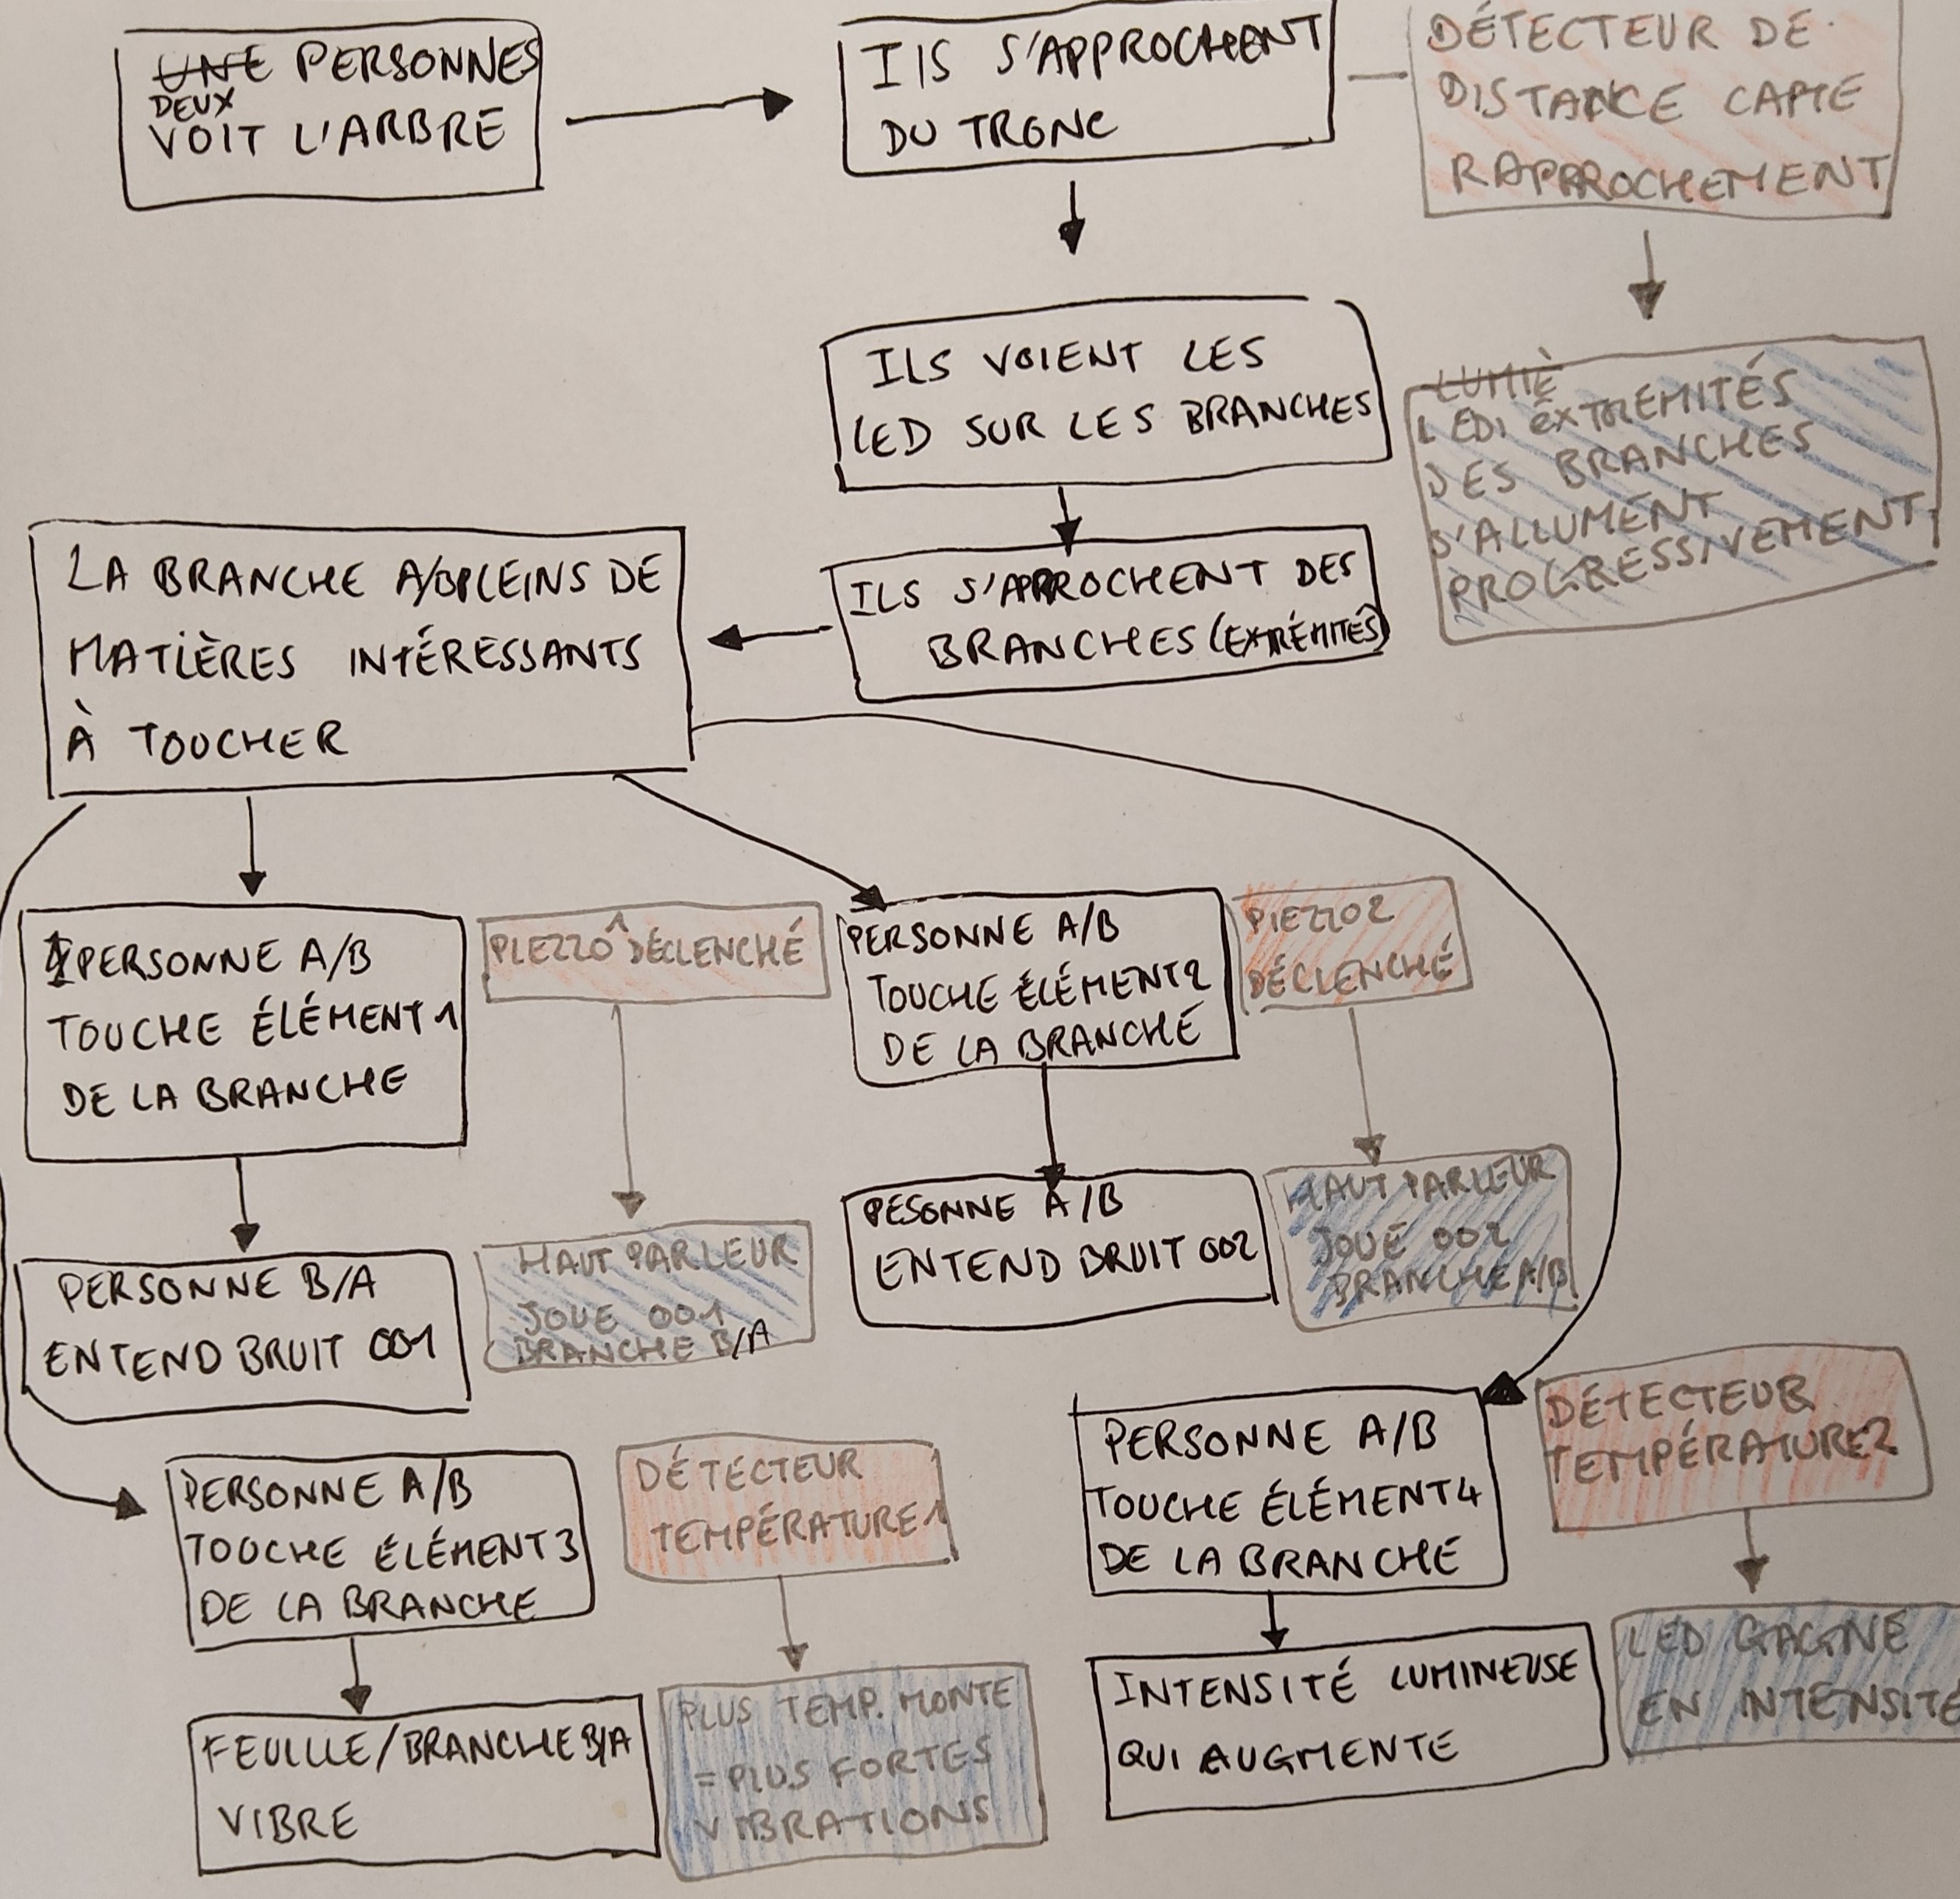 UNE PERSONNES
DEUX
VOIT L'ARBRE
IlS S'APPROCHENT
DU TRONC
DÉTECTEUR DE
DISTANCE CAPTE
RAPPROCHEMENT
ILS VOIENT LES
LED SUR LES BRANCHES
LUMIÈ
LEDs EXTREMITÉS
DES BRANCHES
S'ALLUMENT
PROGRESSIVEMENT
ILS S'APPROCHENT DES
BRANCHES (EXTRÉMITÉS)
LA BRANCHE A/B PLEINS DE
MATIÈRES INTÉRESSANTS
À TOUCHER
PERSONNE A/B
TOUCHE ÉLÉMENT 1
DE LA BRANCHE
PIEZZO 1 DÉCLENCHÉ
PERSONNE A/B
TOUCHE ÉLÉMENT 2
DE LA BRANCHE
PIEZZO 2
DÉCLENCHÉ
PERSONNE B/A
ENTEND BRUIT 001
HAUT PARLEUR
JOUE 001
BRANCHE B/A
PESONNE A/B
ENTEND BRUIT 002
HAUT PARLEUR
JOUE 002
BRANCHE A/B
PERSONNE A/B
TOUCHE ÉLÉMENT 3
DE LA BRANCHE
DÉTECTEUR
TEMPÉRATURE 1
PERSONNE A/B
TOUCHE ÉLÉMENT 4
DE LA BRANCHE
DÉTECTEUR
TEMPÉRATURE 2
FEUILLE/BRANCHE B/A
VIBRE
PLUS TEMP. MONTE
= PLUS FORTES
VIBRATIONS
INTENSITÉ LUMINEUSE
QUI AUGMENTE
LED GAGNE
EN INTENSITÉ